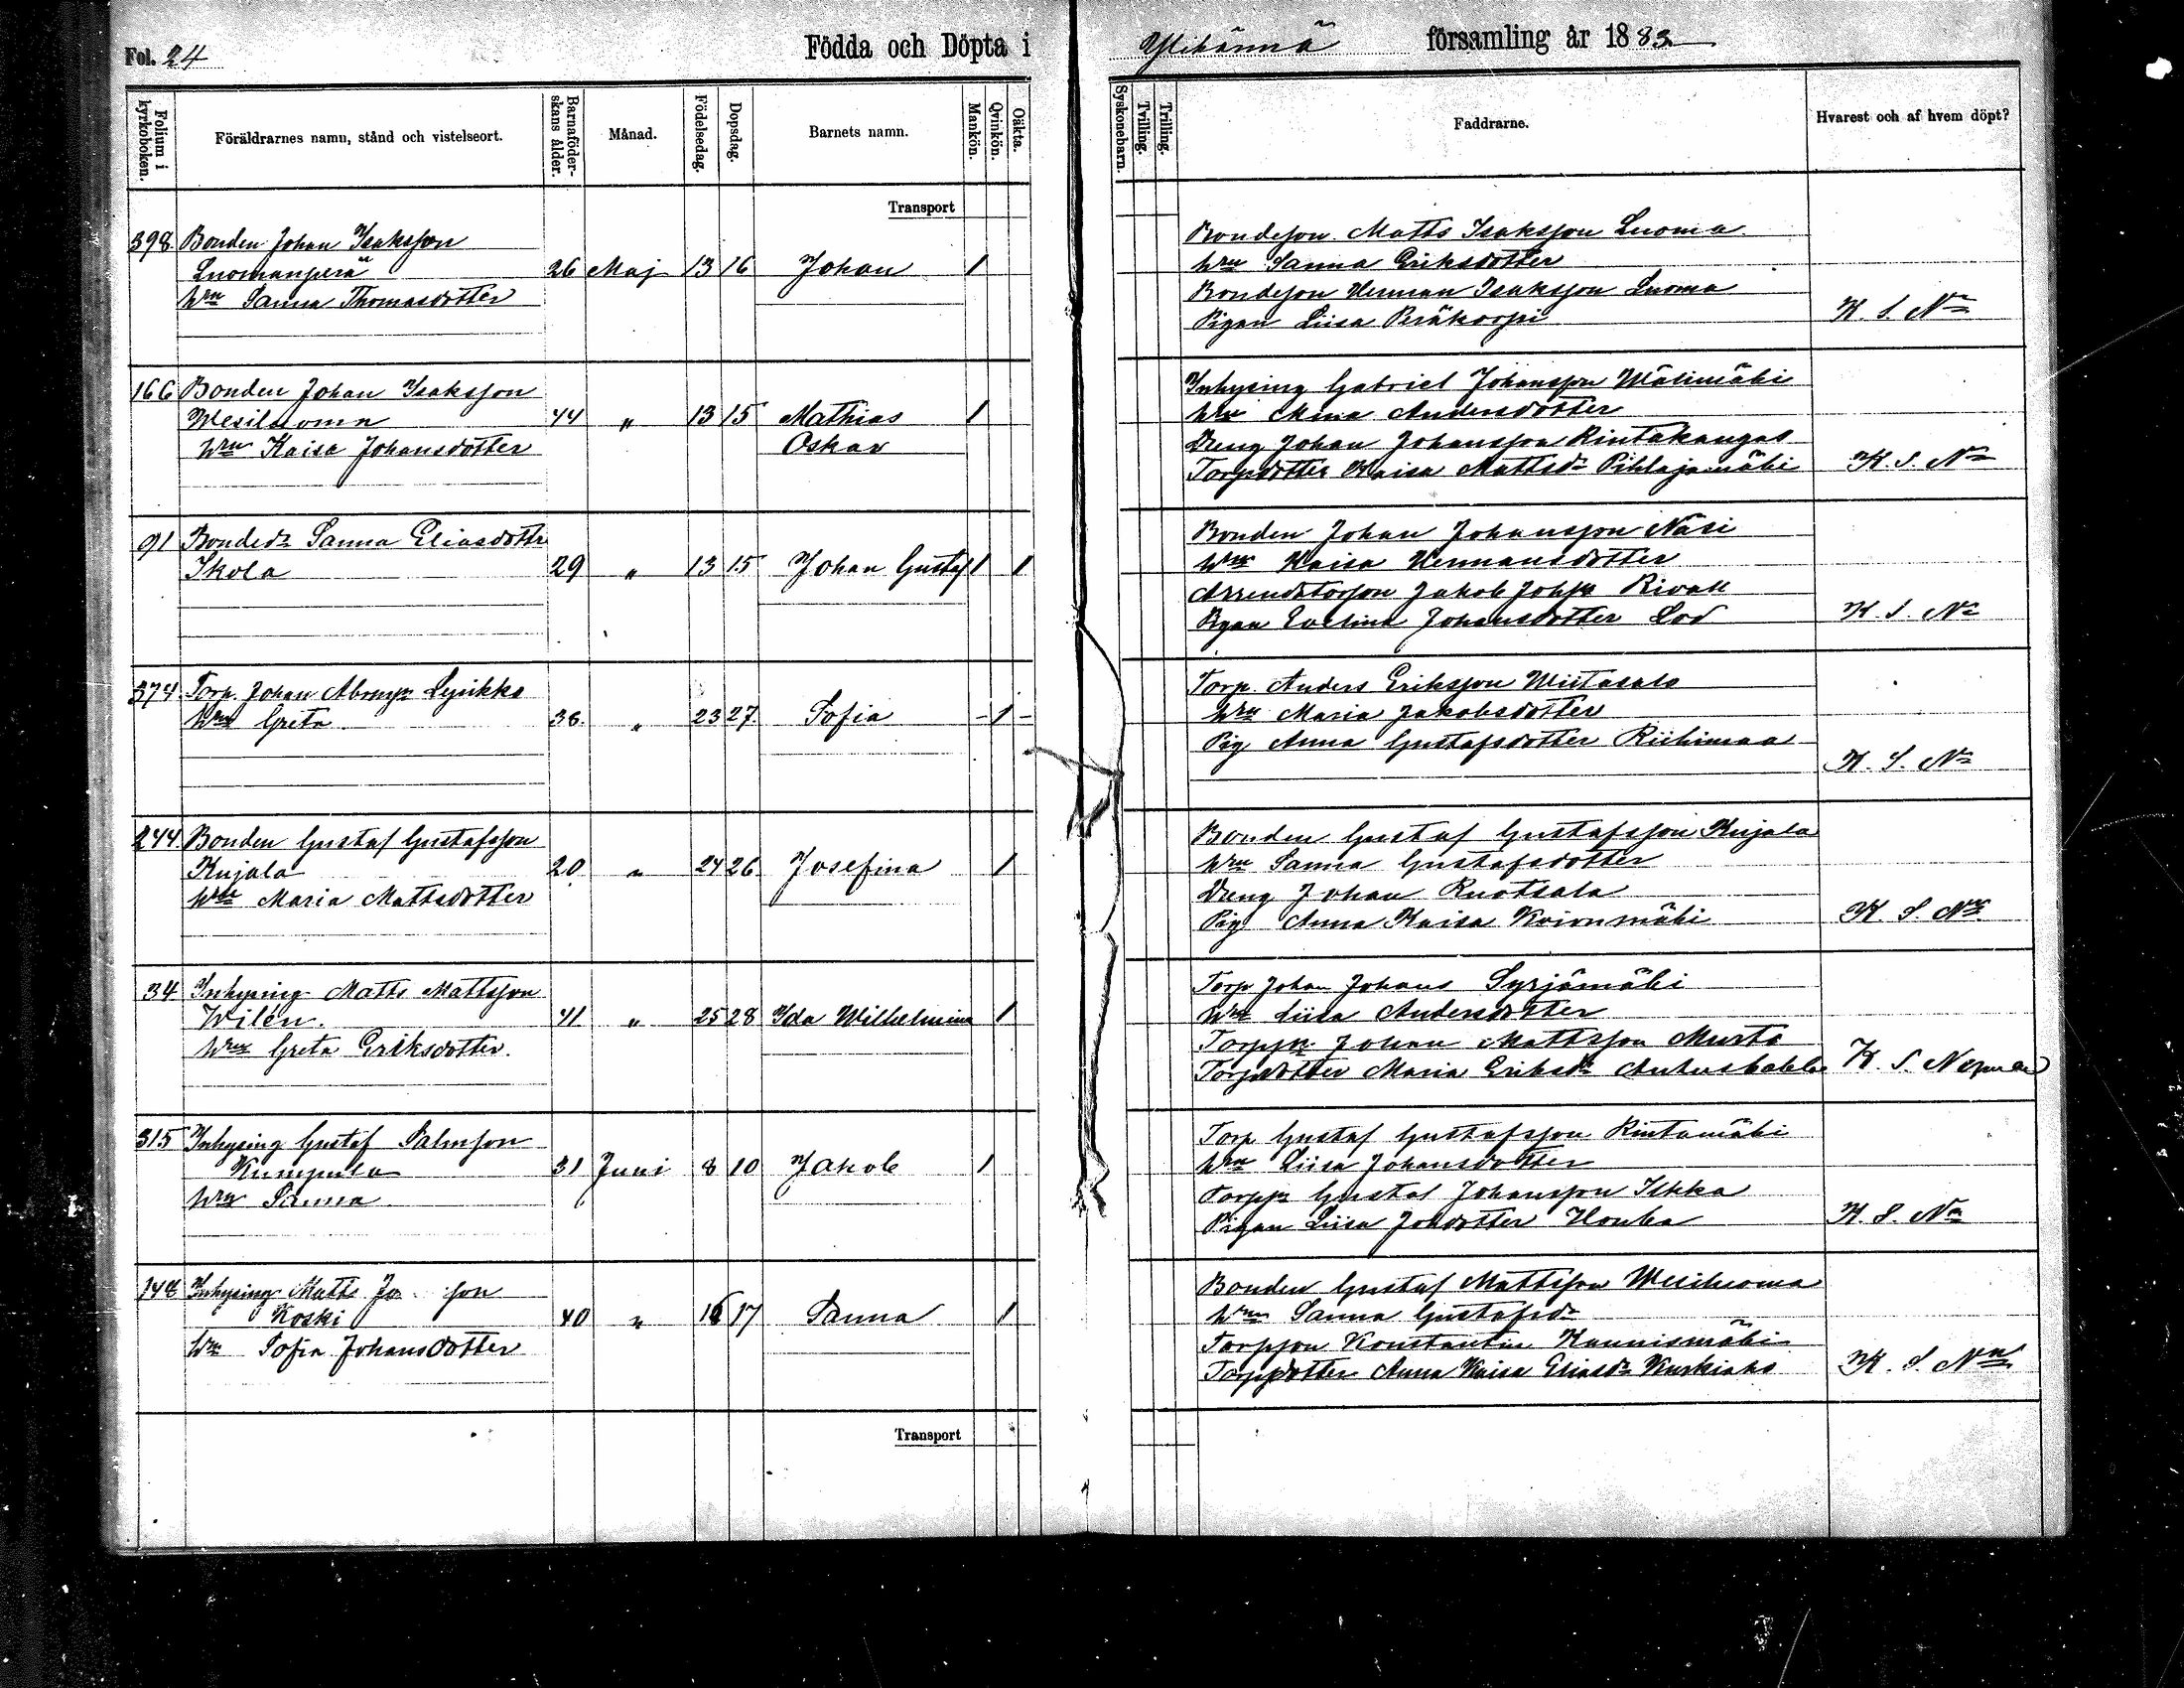 Fol. 24
Födda och Döpta i
Ylihärmä församling år 1883
Folium i kyrkoboken.
Föräldrarnes namn, stånd och vistelseort.
Barnaföderskans ålder.
Månad.
Födelsedag.
Dopsdag.
Barnets namn.
Mankön.
Qvinkön.
Oäkta.
Syskonebarn.
Tvilling.
Trilling.
Faddrarne.
Hvarest och af hvem döpt?
Transport
398 Bonden Johan Isaksson
Luomanperä 26 Maj 13 16 Johan 1
Hru Sanna Thomasdotter
Bondeson Matts Isaksson Luoma
Hru Sanna Eriksdotter
Bondeson Herman Isaksson Luoma
Pigan Liisa Peräkorpi K. S. Nn
166 Bonden Johan Isaksson
Wesiluoma 44 " 13 15 Mathias 1
Hru Kaisa Johansdotter Oskar
Inhysing Gabriel Johansson Wälimäki
Hru Mina Andersdotter
Dreng Johan Johansson Rintakangas
Torpdotter Kaisa Mattsdr Pihlajamäki K. S. Nn
91 Bondedr Sanna Eliasdottr
Ikola 29 " 13 15 Johan Gustaf 1 1
Bonden Johan Johansson Näsi
Hru Kaisa Hermansdotter
Jakob
Pigan Evelina Johansdotter Lod K. S. Nn
374 Torp. Johan Lysikko
Hru Greta 36 " 23 27 Sofia - 1 -
Torp. Anders Eriksson Wiitasalo
Hru Maria Jakobsdotter
Pig Anna Gustafsdotter Riihimaa
K. S. Nn
244 Bonden Gustaf Gustafsson
Kujala 20 " 24 26 Josefina 1
Hru Maria Mattsdotter
Bonden Gustaf Gustafsson Kujala
Hru Sanna Gustafsdotter
Dreng Johan Ruotsala
Pig Anna Kaisa Koivumäki K. S. Nn
34 Inhysing Matts Mattsson
Wilén. 41 " 25 28 Ida Wilhelmina 1
Hru Greta Eriksdotter.
Torp Johan Johans Syrjämäki
Hru Liisa Andersdotter
Johan Mattsson Musto
Torpdotter Maria Eriksdr K. S. Nyman
315 Inhysing Gustaf Salmson
Kumpula 31 Juni 8 10 Jakob 1
Hru Sanna
Torp Gustaf Gustafsson Rintamäki
Hru Liisa Johansdotter
Gustaf Johansson Ilkka
Pigan Liisa Johdotter Houka K. S. Nn
148 Inhysing Matts Jo son
Koski 40 " 16 17 Sanna 1
Hru Sofia Johansdotter
Bonden Gustaf Mattsson Wesiluoma
Hru Sanna Gustafsdr
Torpson Konstantin Kaunismäki
Torpdotter Anna Kaisa Eliasdr K. S. Nn
Transport